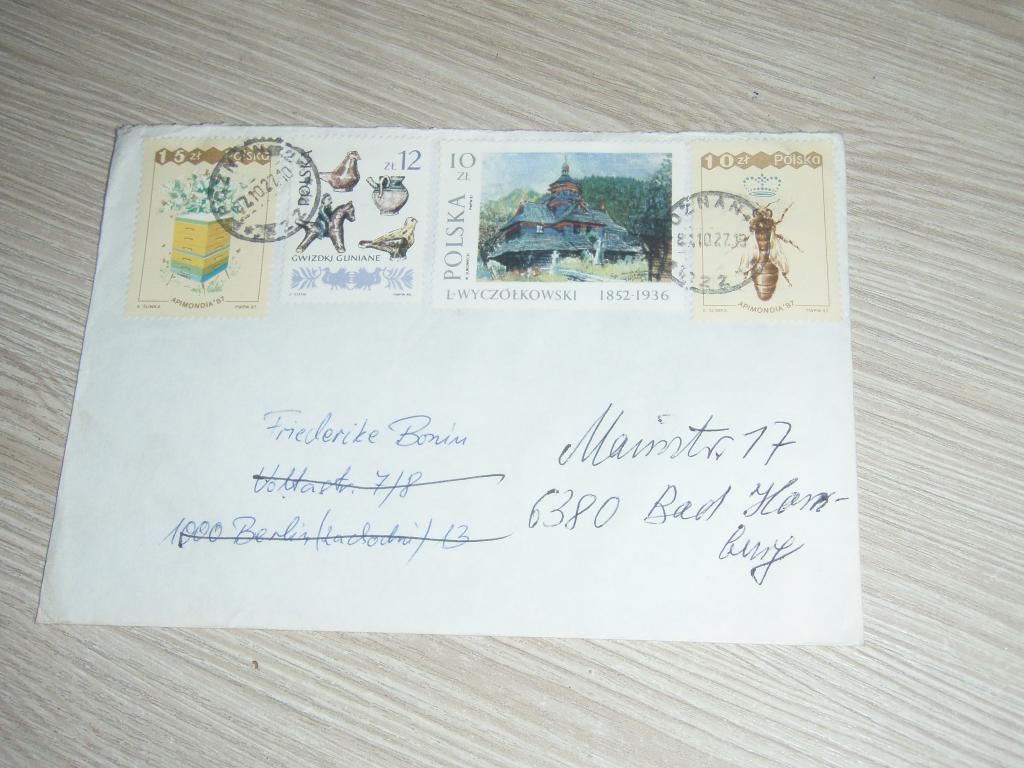 15 zł Polska
APIMONDIA'87
POZNAŃ 2
ZŁ 12
POLSKA
GWIZDKI GLINIANE
10 ZŁ
POLSKA
L·WYCZÓŁKOWSKI 1852-1936
10 zł Polska
POZNAŃ
APIMONDIA'87
Friederike Bonin
Voltastr. 7/8
1000 Berlin (zachodni) 13
Mainstr. 17
6380 Bad Hom-
burg